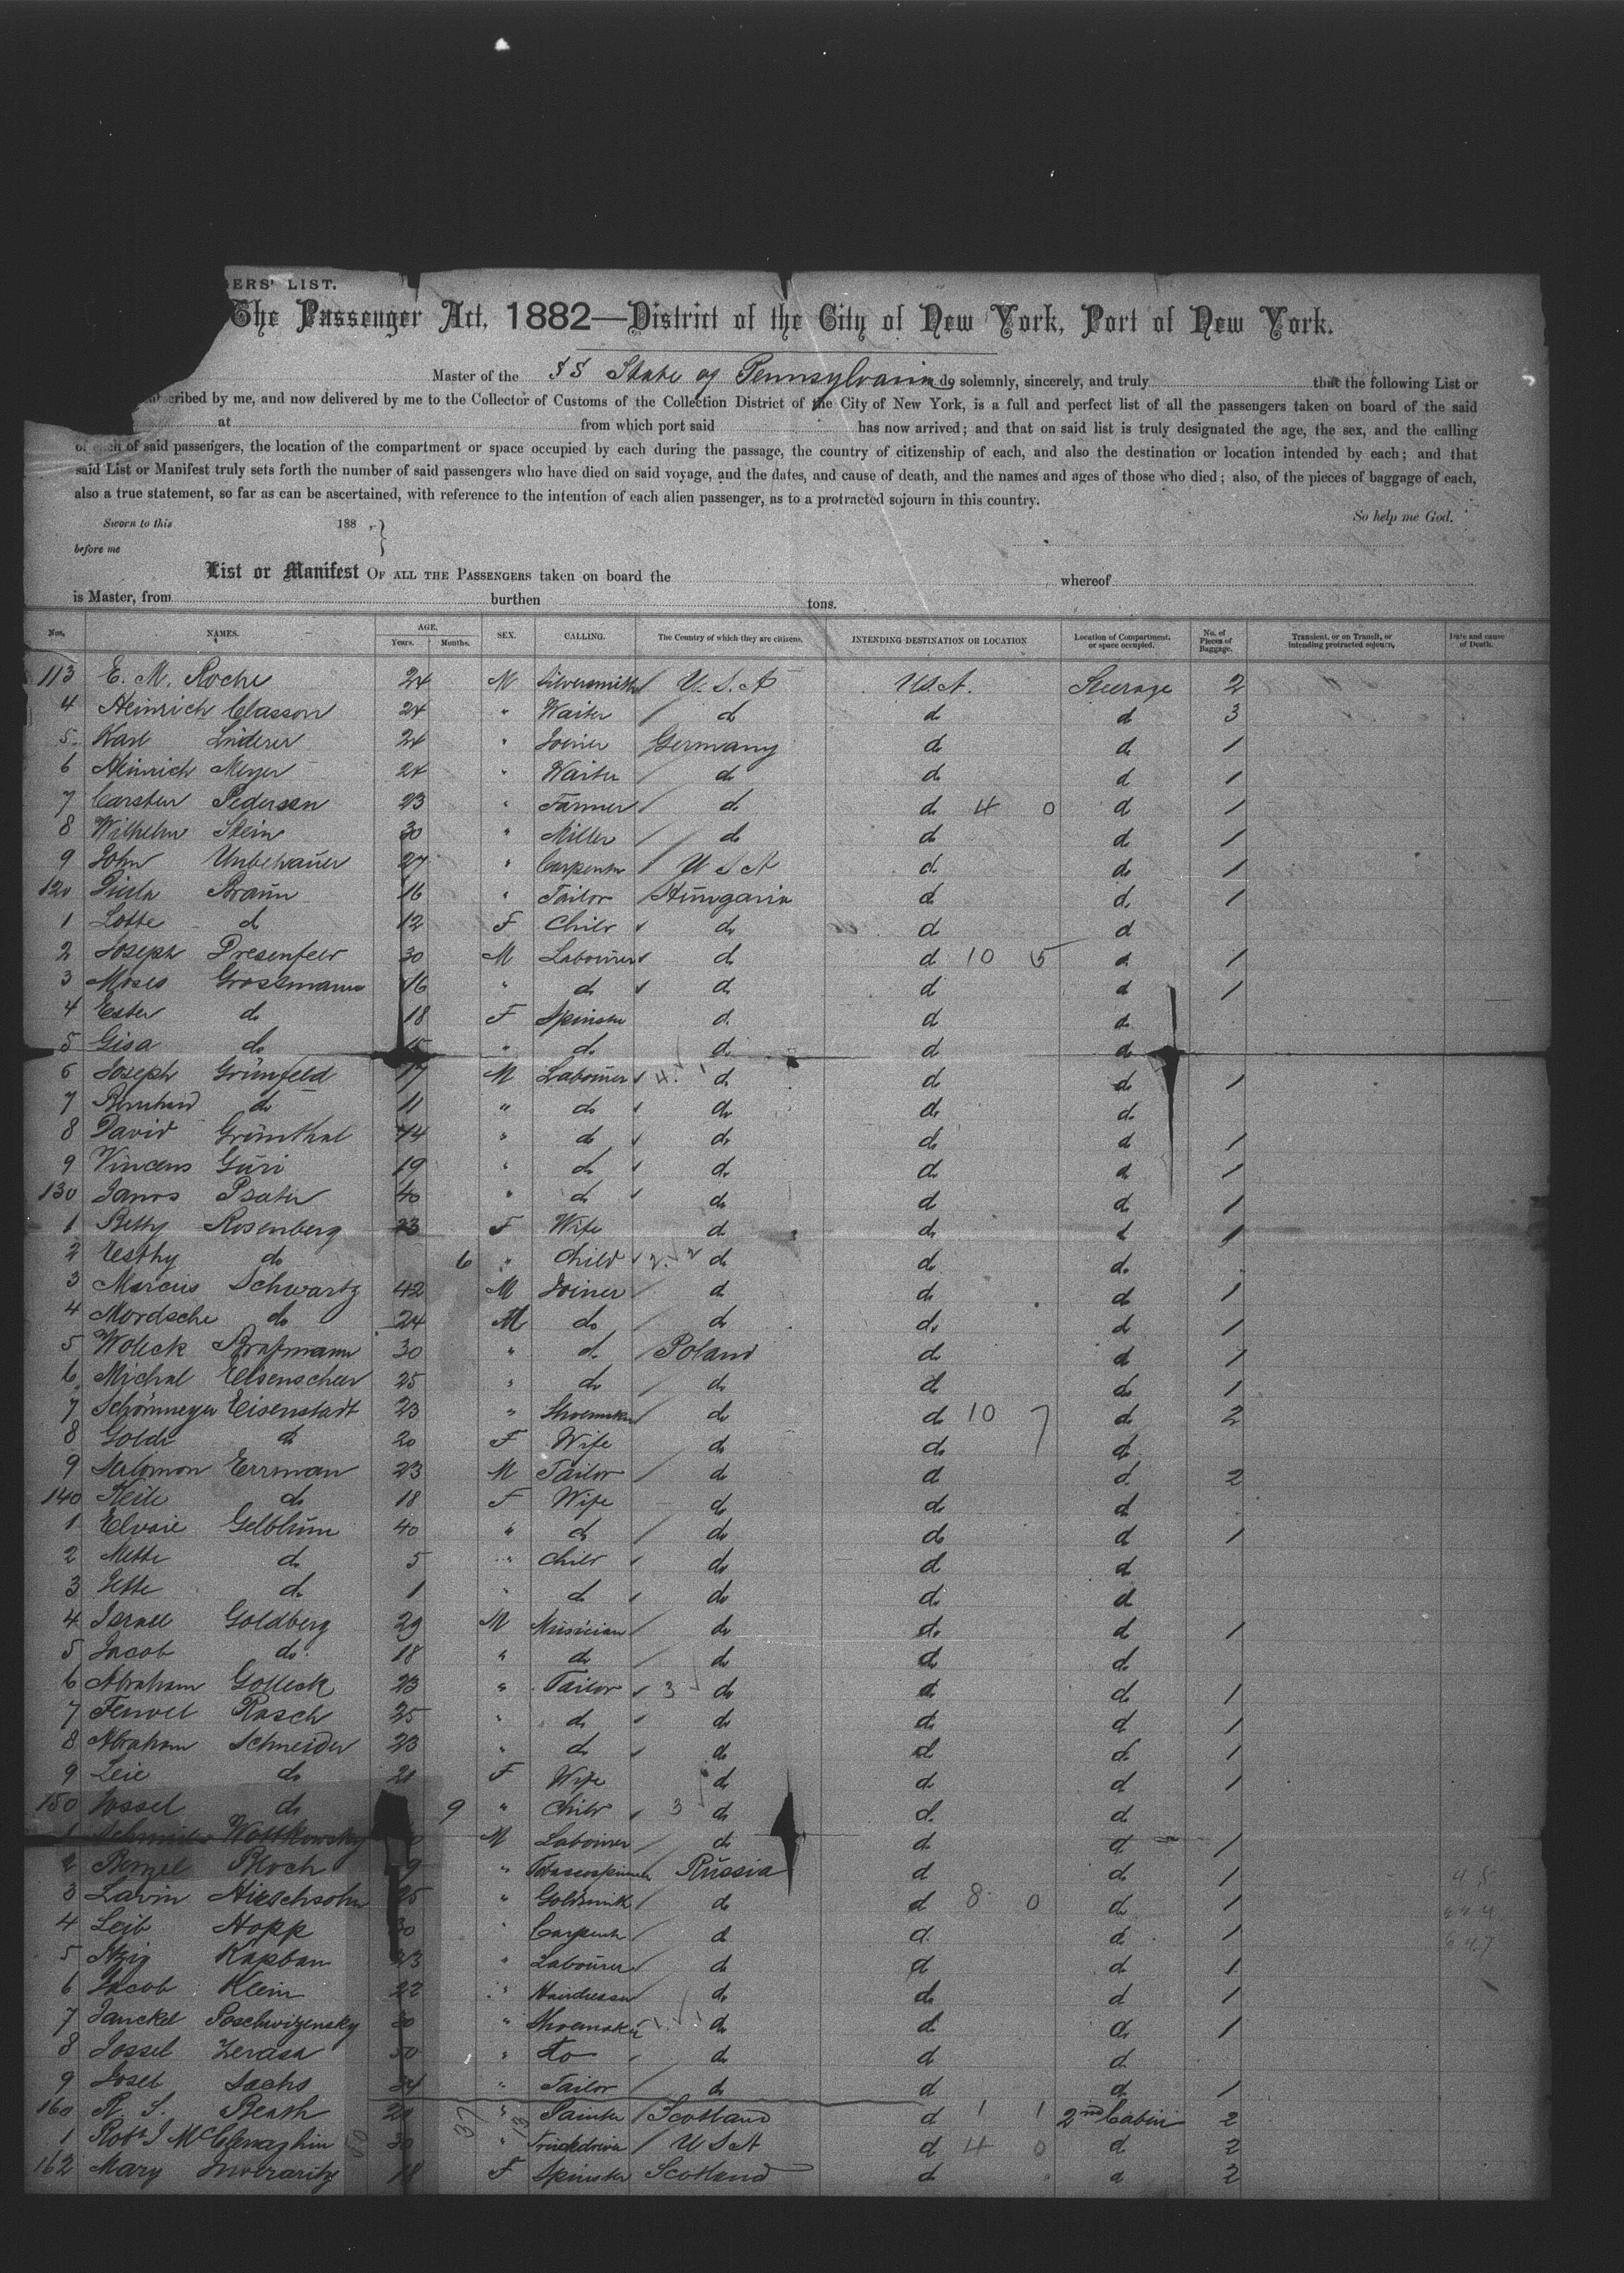 GERS' LIST.
The Passenger Act, 1882—District of the City of New York, Port of New York.
Master of the SS State of Pennsylvania do solemnly, sincerely, and truly that the following List or
scribed by me, and now delivered by me to the Collector of Customs of the Collection District of the City of New York, is a full and perfect list of all the passengers taken on board of the said
at from which port said has now arrived; and that on said list is truly designated the age, the sex, and the calling
of each of said passengers, the location of the compartment or space occupied by each during the passage, the country of citizenship of each, and also the destination or location intended by each; and that
said List or Manifest truly sets forth the number of said passengers who have died on said voyage, and the dates, and cause of death, and the names and ages of those who died; also, of the pieces of baggage of each,
also a true statement, so far as can be ascertained, with reference to the intention of each alien passenger, as to a protracted sojourn in this country.
So help me God.
Sworn to this 188 ,}
before me
List or Manifest OF ALL THE PASSENGERS taken on board the whereof
is Master, from burthen tons.
Nos. NAMES. AGE. Years. Months. SEX. CALLING. The Country of which they are citizens. INTENDING DESTINATION OR LOCATION Location of Compartment, or space occupied. No. of Pieces of Baggage. Transient, or on Transit, or intending protracted sojourn. Date and cause of Death.
113 E. M. Roche 24 M Silversmith / U.S.A U.S.A. Steerage 2
4 Heinrich Classon 24 " Waiter / d d d 3
5 Karl Linderer 24 " Joiner Germany d d 1
6 Heinrich Meyer 24 " Waiter / d d d 1
7 Carsten Pedersen 23 " Farmer / d d 4 0 d 1
8 Wilhelm Stein 30 " Miller / d d d 1
9 John Unbehauer 27 " Carpenter / U S A d do 1
120 Braun 16 " Tailor / Hungaria d d. 1
1 Lotte d 12 F Child do d d
2 Joseph Dresenfeld 30 M Labourer d d 10 5 d 1
3 Moses Grossmann 16 " d d d d 1
4 Ester do 18 F Spinster d. d d
5 Gisa do 15 " do d. d do
6 Joseph Grünfeld 17 M Labourer 4. 1 d d d 1
7 Bernhard do 11 " do do do do
8 David Grünthal 44 " do do do d 1
9 Vincens Güri 19 " do do do d 1
130 Janos 40 " d do d d 1
1 Betty Rosenberg 23 F Wife d do d 1
2 Esthy do 6 " Child 2. 2 d do do
3 Marcus Schwartz 42 M Joiner / d do d 1
4 Mordsche do 24 M do / do do d 1
5 Woleck 30 " d. / Poland do d 1
6 Michal 25 " do / do do do 1
7 Schönmeyer Eisenstadt 23 " Shoemaker / do d 10 7 d 2
8 Golde d 20 F Wife do do do
9 Salomon Errman 23 M Tailor / do d d 2
140 Keile do 18 F Wife do do d
1 Gelblum 40 " d / do do d 1
2 Mette do 5 " Child do d d
3 Jette d 1 " d do do d
4 Israel Goldberg 29 M Musician / do do d 1
5 Jacob do. 18 " do / do do d
6 Abraham Golleck 23 " Tailor 3 do d. d 1
7 Rasch 25 " d. do do d 1
8 Abraham Schneider 23 " d do d do 1
9 Leie do 21 F Wife d d. d 1
150 Jossel do 9 " Child 3 d d. d
1 Wottkowsky M Labourer / do d. d 1
2 Bloch 9 " Russia d do 1
3 Lavin Hirschsohn 25 " Goldsmith / do d 8 0 do 1
4 Leib Hopp 30 " Carpenter / d d. d 1
5 Itzig Kapban 23 " Labourer d d d 1
6 Jacob Klein 22 " Hairdresser do do d 1
7 Janckel 30 " Shoemaker do d d 1
8 Jossel 50 " do do d d
9 Josel Sachs 34 " Tailor / do d d 1
160 R. S. Beath " Painter / Scotland d 1 1 2nd Cabin 2
1 Robt J McClenaghin 30 " / U S A d 4 0 d 2
162 Mary Inverarity 18 F Spinster Scotland d d 2